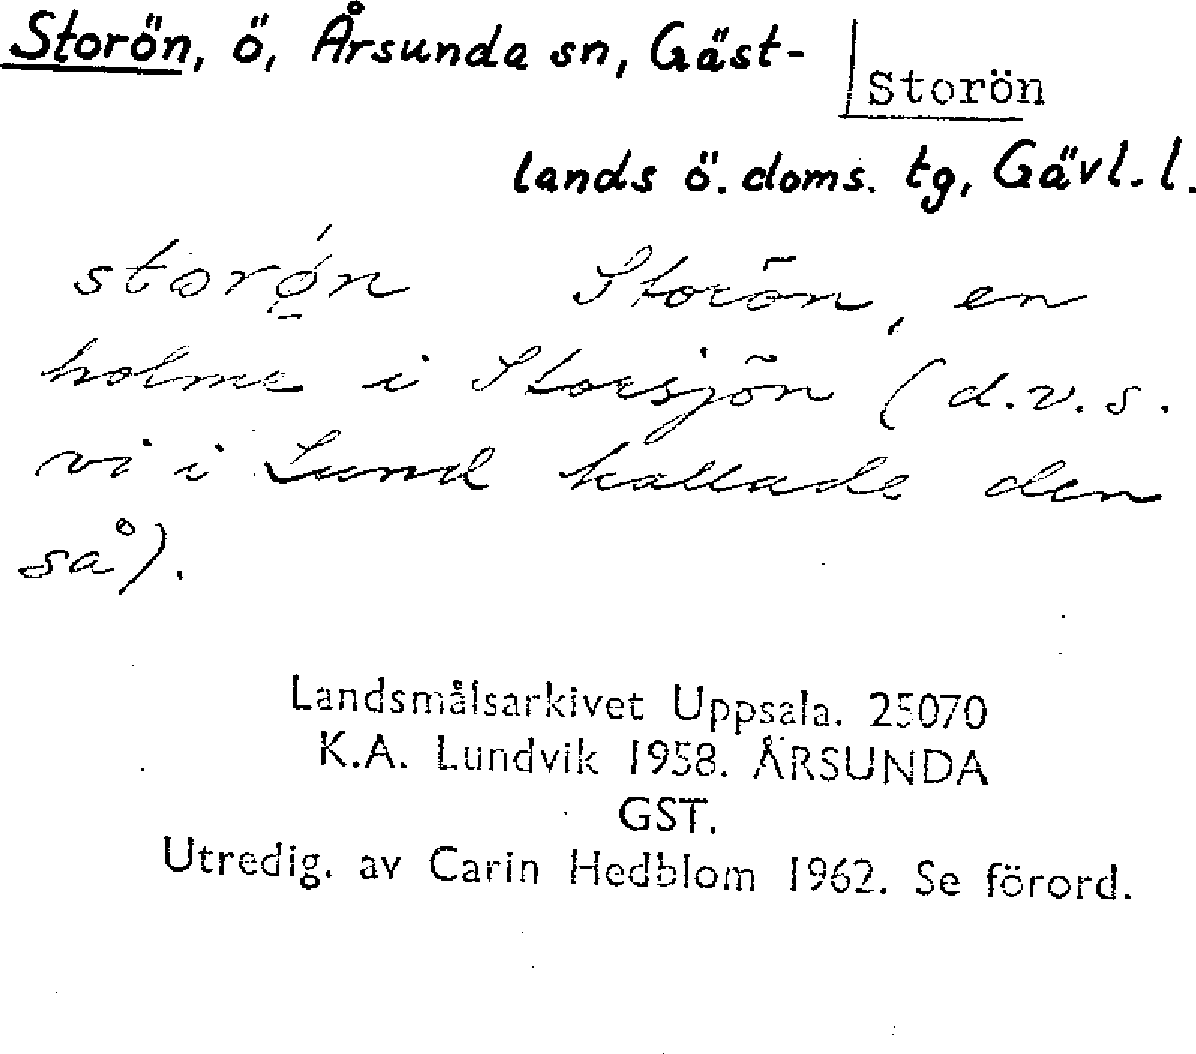 Storön, ö, Årsunda sn, Gäst-
Storön
lands ö. doms. tg, Gävl. l.
storǿ̱n Storön, en
holme i Storsjön (d.v.s.
vi i Lund kallade den
så).
Landsmålsarkivet Uppsala. 25070
K.A. Lundvik 1958. ÅRSUNDA
GST.
Utredig. av Carin Hedblom 1962. Se förord.